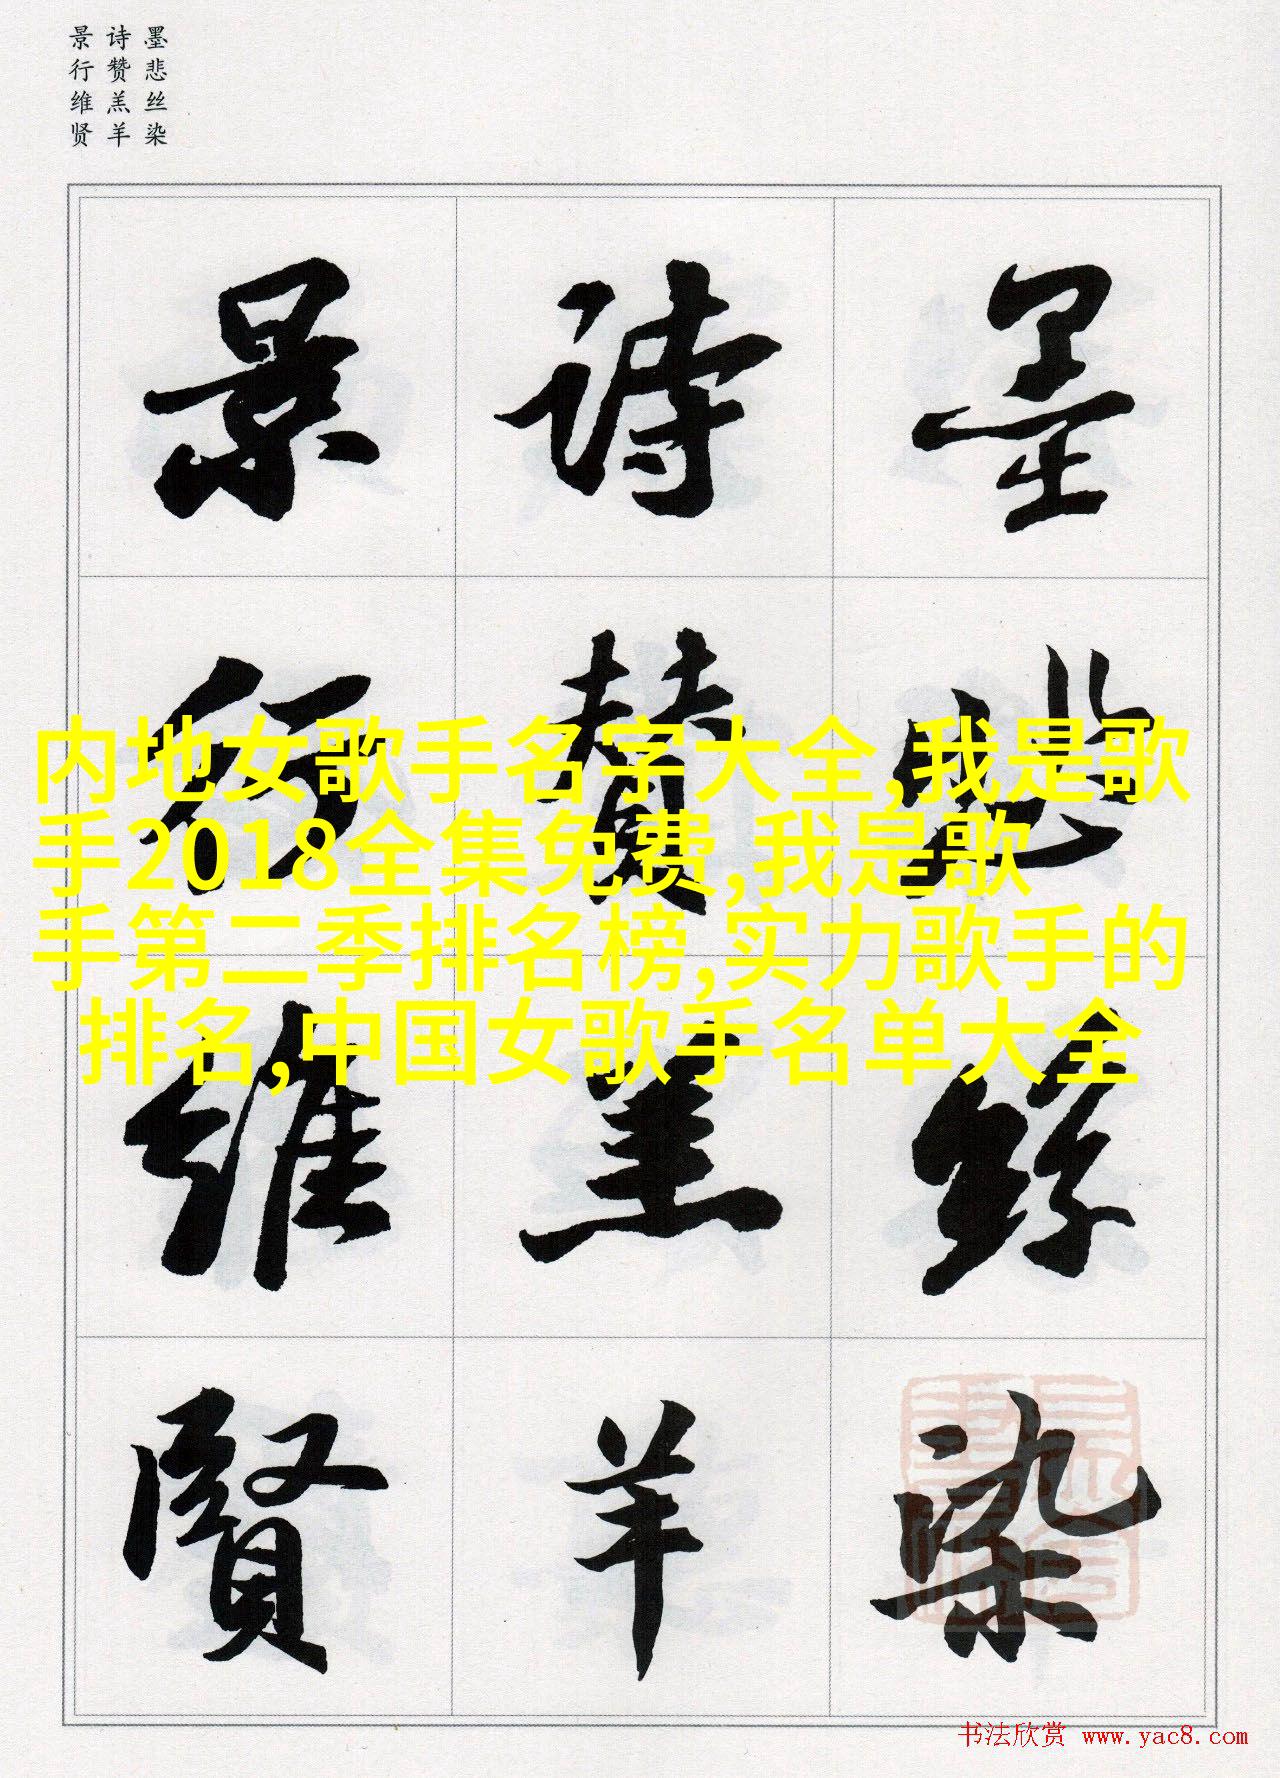 墨悲丝染
诗赞羔羊
景行维贤
墨悲絲染
詩贊羔羊
景行維賢
内地女歌手名字大全,我是歌
手2018全集免费,我是歌
手第二季排名榜,实力歌手的
排名,中国女歌手名单大全
书法欣赏 www.yac8.com